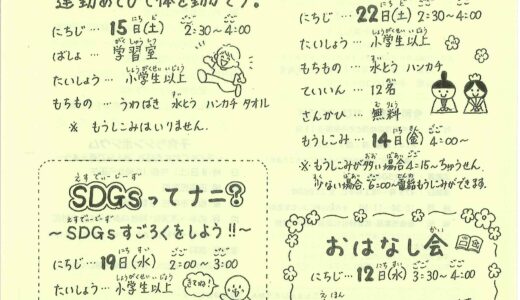 運動あそびで体を動かそう!
にちじ…15日(土) 2:30~4:00
ばしょ…学習室
たいしょう…小学生以上
もちもの…うわばき 水とう ハンカチ タオル
※ もうしこみはいりません。
SDGsってナニ?
~SDGsすごろくをしよう!!~
にちじ…19日(水) 2:00~3:00
たいしょう…小学生以上
きてね!
にちじ…22日(土) 2:30~4:00
たいしょう…小学生以上
もちもの…水とう ハンカチ
ていいん…12名
さんかひ…無料
もうしこみ…14日(金) 4:00~
※もうしこみが多い場合4:15~ちゅうせん。
少ない場合、6:00~電話もうしこみができます。
おはなし会
にちじ…12日(水) 3:30~4:00